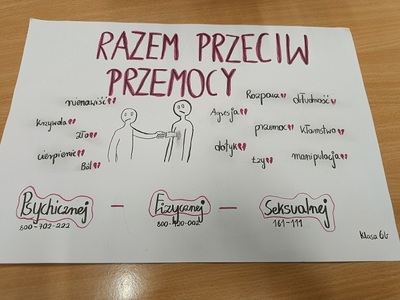 RAZEM PRZECIW
PRZEMOCY
nienawiść
Krzywda
Zło
cierpienie
Ból
Rozpacz
obłudność
Agresja
przemoc
Kłamstwo
dotyk
łzy
manipulacja
Psychicznej - Fizycznej - Seksualnej
800-702-222
800-120-002
116-111
klasa 6b